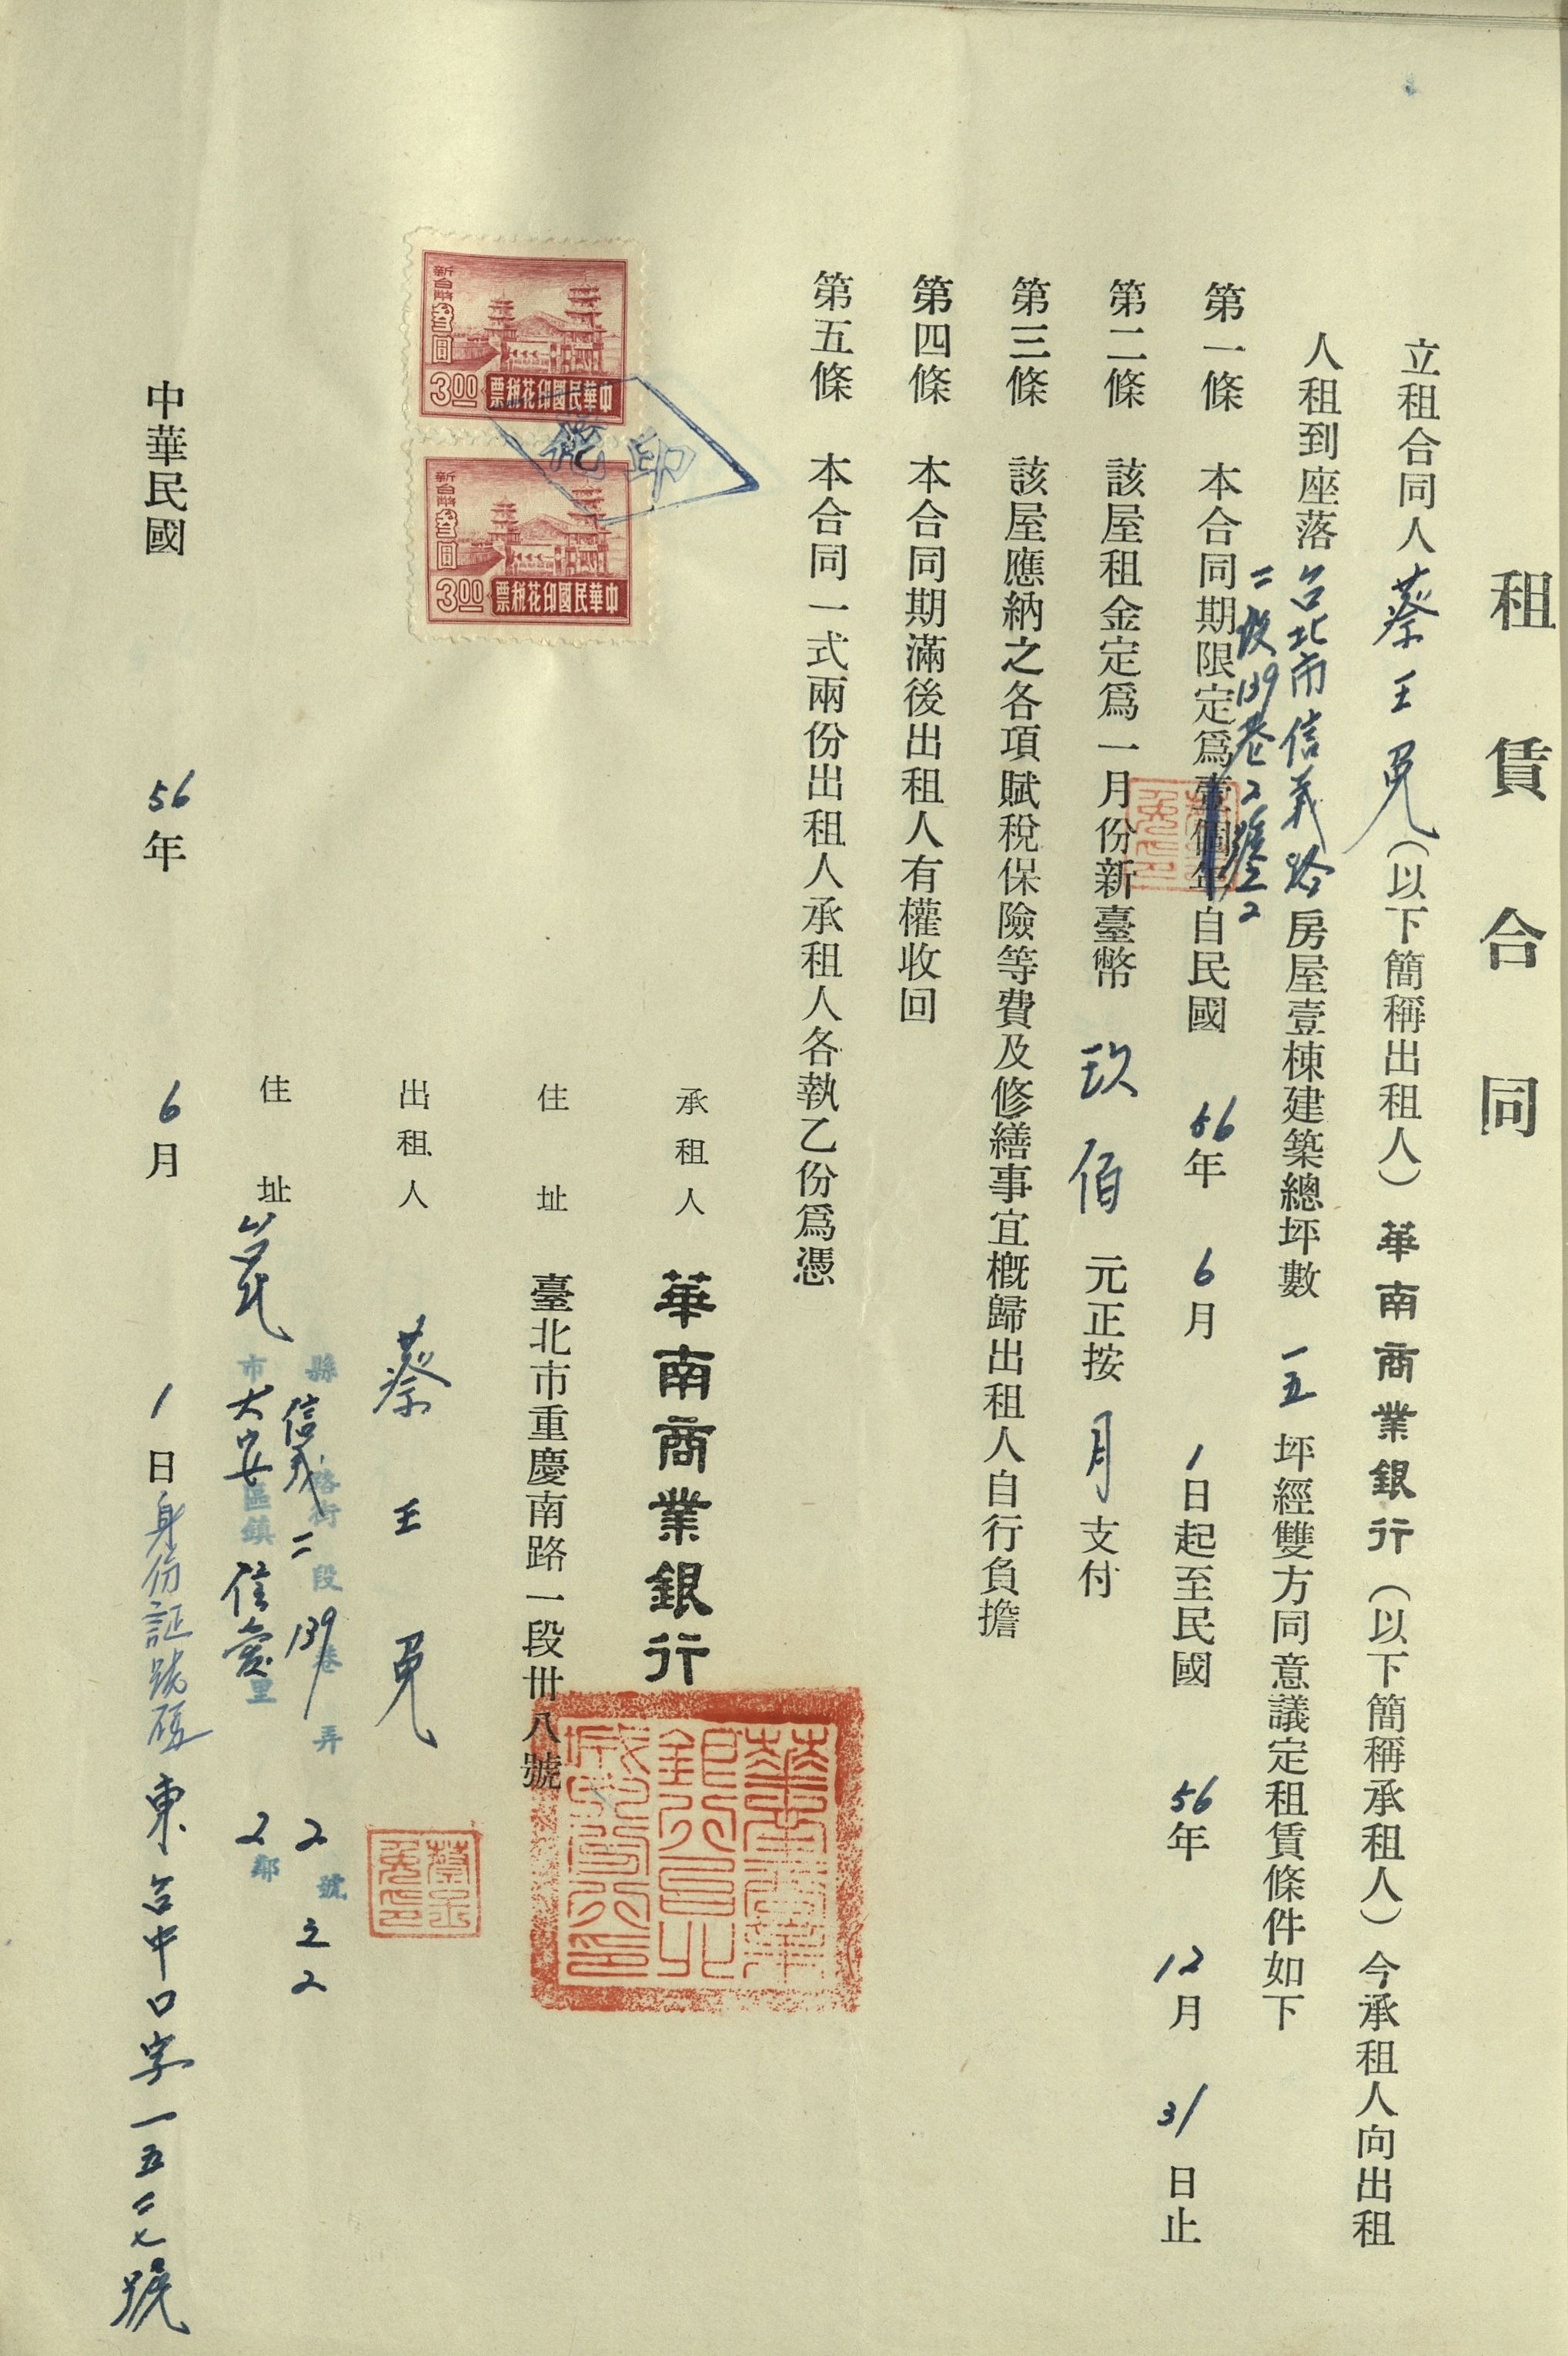 租賃合同
立租合同人蔡王免（以下簡稱出租人）華南商業銀行（以下簡稱承租人）今承租人向出租
人租到座落台北市信義路二段139巷2號之2房屋壹棟建築總坪數一五坪經雙方同意議定租賃條件如下
第一條 本合同期限定爲壹個年自民國56年6月1日起至民國56年12月31日止
第二條 該屋租金定爲一月份新臺幣玖佰元正按月支付
第三條 該屋應納之各項賦稅保險等費及修繕事宜概歸出租人自行負擔
第四條 本合同期滿後出租人有權收回
第五條 本合同一式兩份出租人承租人各執乙份爲憑
新台幣叁圓
3.00
中華民國印花稅票
新台幣叁圓
3.00
中華民國印花稅票
承租人 華南商業銀行
住址 臺北市重慶南路一段卅八號
出租人 蔡王免
蔡王免印
住址 台北
縣信義路街二段139巷弄2號之2
市大安區鎮信愛里2鄰
中華民國56年6月1日身份証號碼東台中口字一五二七號